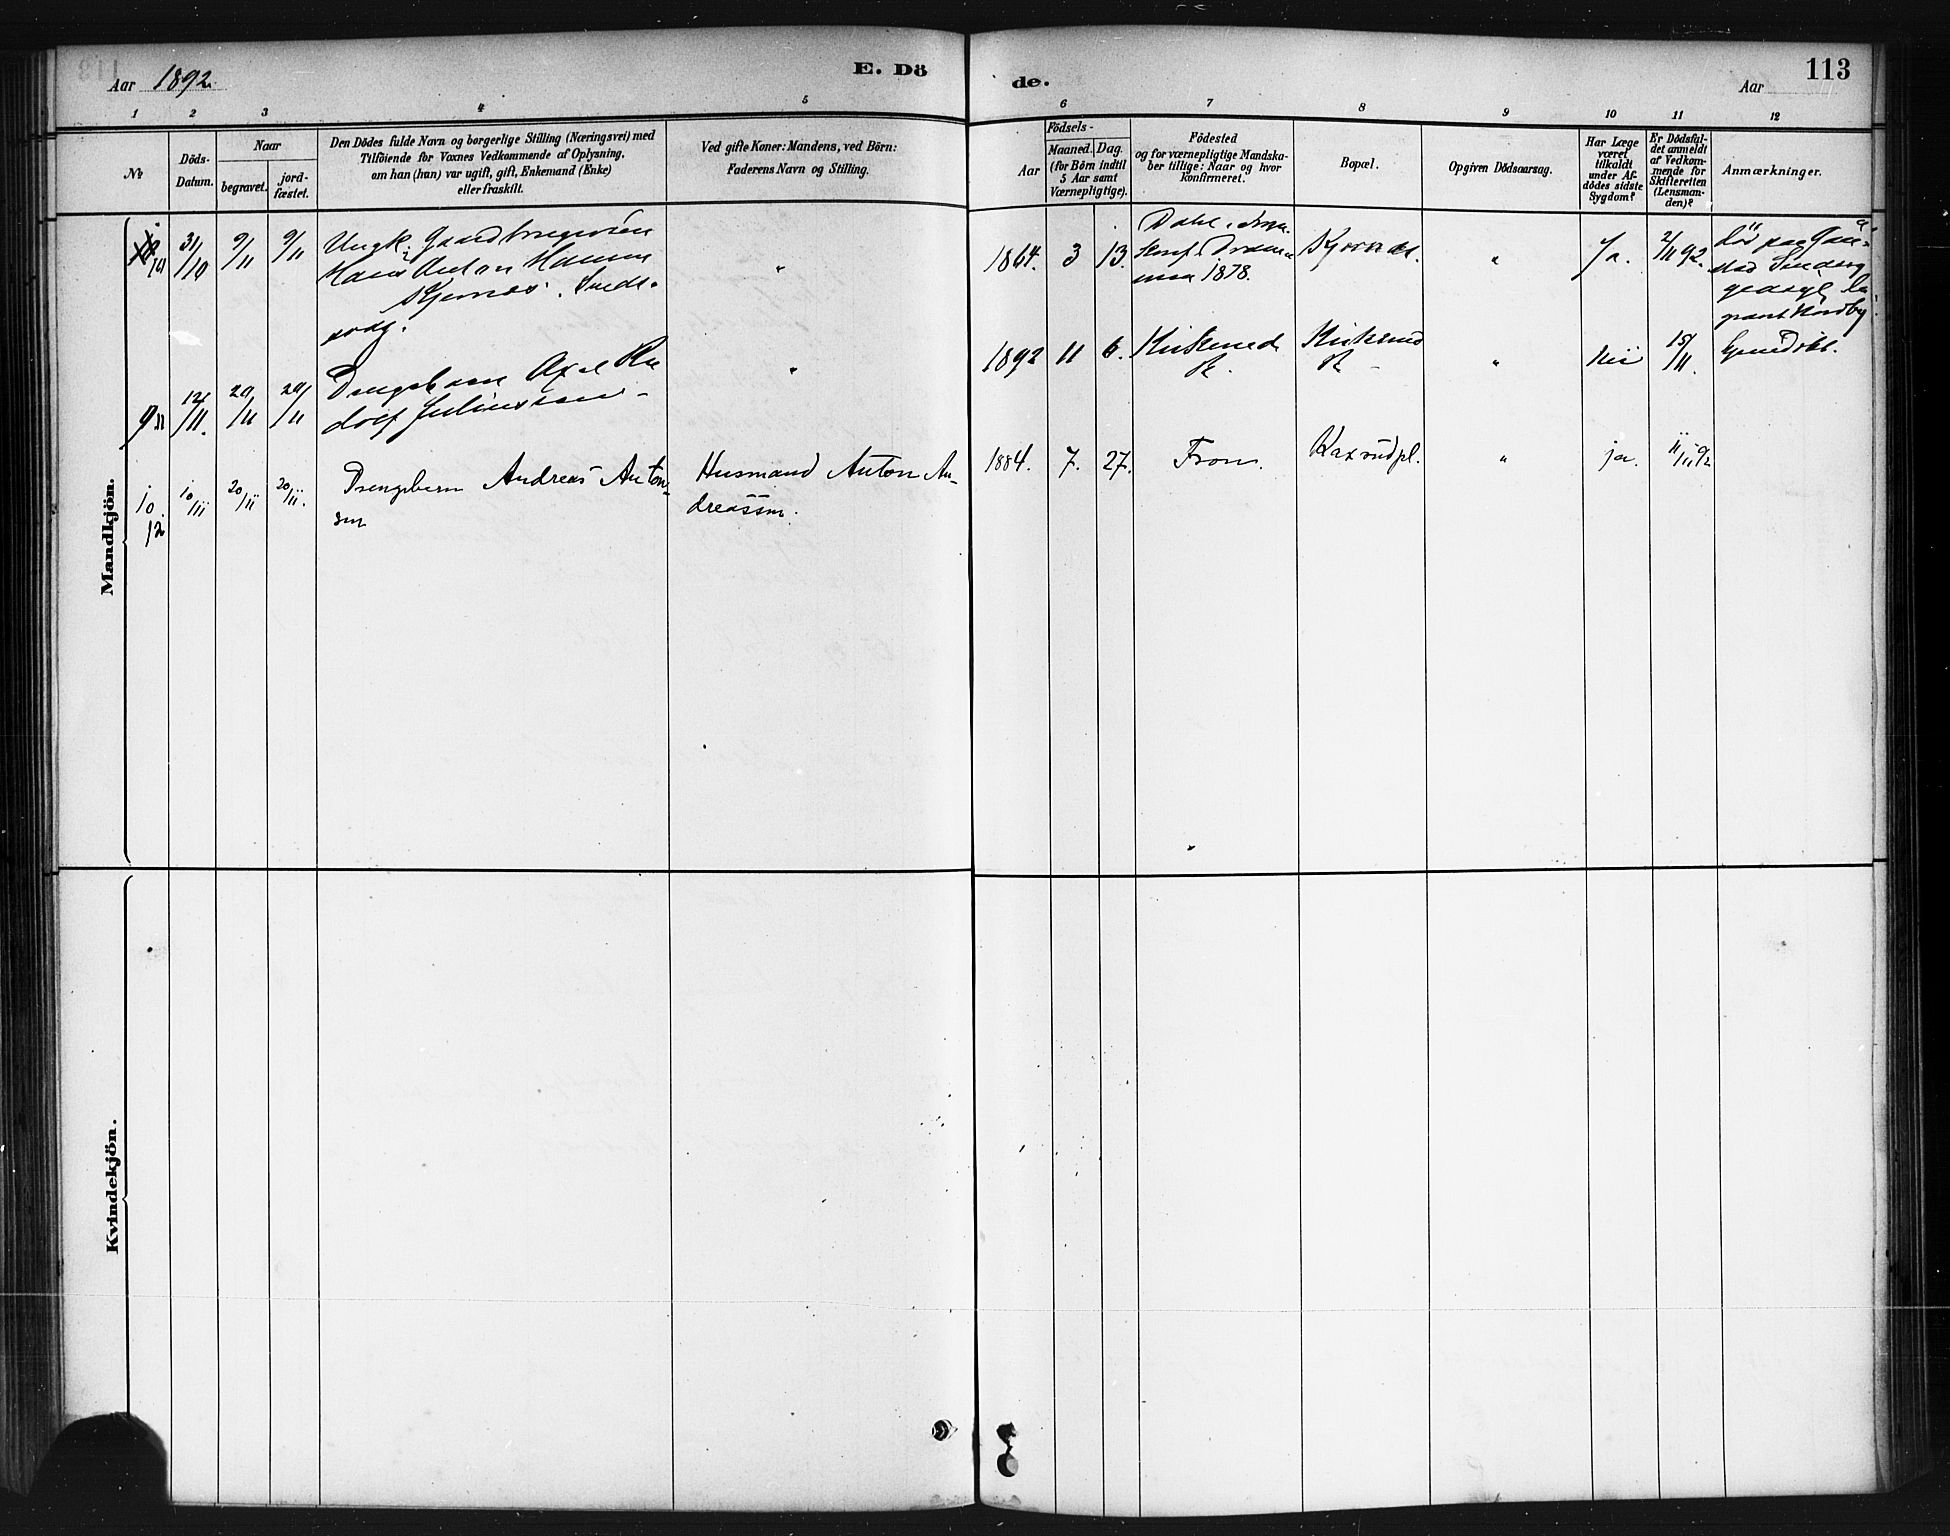 Aar 1892
E. Dö
de.
Aar
113
1 2 3 4 5 6 7 8 9 10 11 12
No
Döds-
Datum.
Naar
begravet.
jord-
fæstet.
Den Dödes fulde Navn og borgerlige Stilling (Næringsvei) med
Tilföiende for Voxnes Vedkommende af Oplysning,
om han (hun) var ugift, gift, Enkemand (Enke)
eller fraskilt.
Ved gifte Koner: Mandens, ved Börn:
Faderens Navn og Stilling.
Födsels-
Aar
Maaned. Dag.
(for Börn indtil
5 Aar samt
Værnepligtige).
Födested
og for værnepligtige Mandska-
ber tillige: Naar og hvor
konfirmeret.
Bopæl.
Opgiven Dödsaarsag.
Har Læge
været
tilkaldt
under Af-
dödes sidste
Sygdom?
Er Dödsfal-
det anmeldt
af Vedkom-
mende for
Skifteretten
(Lensman-
den)?
Anmærkninger.
Mandkjön.
31/10 9/11 9/11 Ungk. Gaardbrugersön
Hans Anton Hansen
1864. 3 13.
1878.
Ja. 2/11 92.
12/11. 20/11 20/11 Drengebarn Axel Ru
dolf Juliussen
1892 11 6. 15/11.
10
12 10/11 20/11 20/11. Drengebarn Andreas Anton-
sen
Husmand Anton An-
dreassen.
1884. 7. 27. Fron. ja. 11/11 92
Kvindekjön.